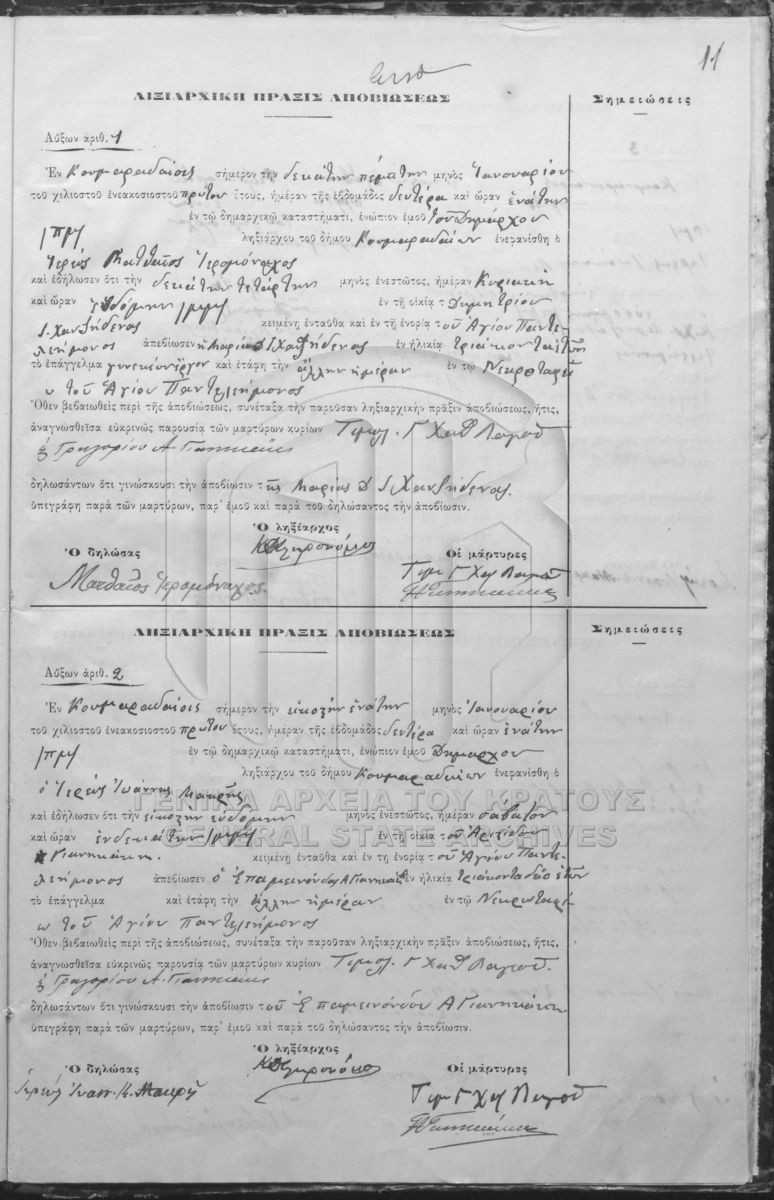 11
ΛΗΞΙΑΡΧΙΚΗ ΠΡΑΞΙΣ ΑΠΟΒΙΩΣΕΩΣ
Σημειώσεις
Αὔξων ἀριθ. 1
Ἐν Κουμαραδαίοις σήμερον τὴν δεκάτην πέμπτην μηνὸς Ἰανουαρίου
τοῦ χιλιοστοῦ ἐνεακοσιοστοῦ πρώτου ἔτους, ἡμέραν τῆς ἑβδομάδος Δευτέρα καὶ ὥραν ἐνάτην
/πμ/ ἐν τῷ δημαρχικῷ καταστήματι, ἐνώπιον ἐμοῦ τοῦ Δημάρχου
ληξιάρχου τοῦ δήμου Κουμαραδαίων ἐνεφανίσθη ὁ
Ἱερεὺς Ματθαῖος Ἱερομόναχος
καὶ ἐδήλωσεν ὅτι τὴν δεκάτην τετάρτην μηνὸς ἐνεστῶτος, ἡμέραν Κυριακὴ
καὶ ὥραν ἑβδόμην /μμ/ ἐν τῇ οἰκίᾳ τ Δημητρίου
κειμένῃ ἐνταῦθα καὶ ἐν τῇ ἐνορίᾳ τοῦ Ἁγίου Παντε-
λεήμονος ἀπεβίωσεν ἡ Μαρία Δ ἐν ἡλικίᾳ τριάκοντα ἐτῶν
τὸ ἐπάγγελμα καὶ ἐτάφη τὴν ἄλλην ἡμέραν ἐν τῷ Νεκροταφεί
ῳ τοῦ Ἁγίου Παντελεήμονος
Ὅθεν βεβαιωθεὶς περὶ τῆς ἀποβιώσεως, συνέταξα τὴν παροῦσαν ληξιαρχικὴν πρᾶξιν ἀποβιώσεως, ἥτις,
ἀναγνωσθεῖσα εὐκρινῶς παρουσίᾳ τῶν μαρτύρων κυρίων Τιμολ. Γ Χατζ
Γρηγορίου Α. Γιαννικάκη
δηλωσάντων ὅτι γινώσκουσι τὴν ἀποβίωσιν τῆς Μαρίας Δ
ὑπεγράφη παρὰ τῶν μαρτύρων, παρ' ἐμοῦ καὶ παρὰ τοῦ δηλώσαντος τὴν ἀποβίωσιν.
Ὁ ληξίαρχος
Ὁ δηλώσας
Οἱ μάρτυρες
Ματθαῖος Ἱερομόναχος.
ΛΗΞΙΑΡΧΙΚΗ ΠΡΑΞΙΣ ΑΠΟΒΙΩΣΕΩΣ
Σημειώσεις
Αὔξων ἀριθ. 2
Ἐν Κουμαραδαίοις σήμερον τὴν εἰκοστὴν ἐνάτην μηνὸς Ἰανουαρίου
τοῦ χιλιοστοῦ ἐνεακοσιοστοῦ πρώτου ἔτους, ἡμέραν τῆς ἑβδομάδος Δευτέρα καὶ ὥραν ἐνάτην
/πμ/ ἐν τῷ δημαρχικῷ καταστήματι, ἐνώπιον ἐμοῦ Δημάρχου
ληξιάρχου τοῦ δήμου Κουμαραδαίων ἐνεφανίσθη ὁ
ὁ Ἱερεὺς Ἰωάννης Μακρῆς
καὶ ἐδήλωσεν ὅτι τὴν εἰκοστὴν ἑβδόμην μηνὸς ἐνεστῶτος, ἡμέραν σάβατον
καὶ ὥραν ἑνδεκάτην /μμ/ ἐν τῇ οἰκίᾳ τοῦ Ἀριστίδου
Γιαννικάκη. κειμένῃ ἐνταῦθα καὶ ἐν τῇ ἐνορίᾳ τοῦ Ἁγίου Παντε-
λεήμονος ἀπεβίωσεν ὁ Ἐπαμεινόνδας Α Γιαννικάκης ἐν ἡλικίᾳ τριάκοντα δύο ἐτῶν
τὸ ἐπάγγελμα καὶ ἐτάφη τὴν ἄλλην ἡμέραν ἐν τῷ Νεκρωταφεί
ῳ τοῦ Ἁγίου Παντελεήμονος
Ὅθεν βεβαιωθεὶς περὶ τῆς ἀποβιώσεως, συνέταξα τὴν παροῦσαν ληξιαρχικὴν πρᾶξιν ἀποβιώσεως, ἥτις,
ἀναγνωσθεῖσα εὐκρινῶς παρουσίᾳ τῶν μαρτύρων κυρίων Τιμολ. Γ Χατζ
Γρηγορίου Α. Γιαννικάκη
δηλωσάντων ὅτι γινώσκουσι τὴν ἀποβίωσιν τοῦ Ἐπαμεινόνδου Α Γιαννικάκη
ὑπεγράφη παρὰ τῶν μαρτύρων, παρ' ἐμοῦ καὶ παρὰ τοῦ δηλώσαντος τὴν ἀποβίωσιν.
Ὁ ληξίαρχος
Ὁ δηλώσας
Οἱ μάρτυρες
Ἱερεὺς Ἰωαν. Κ. Μακρῆς
ΓΕΝΙΚΑ ΑΡΧΕΙΑ ΤΟΥ ΚΡΑΤΟΥΣ
GENERAL STATE ARCHIVES